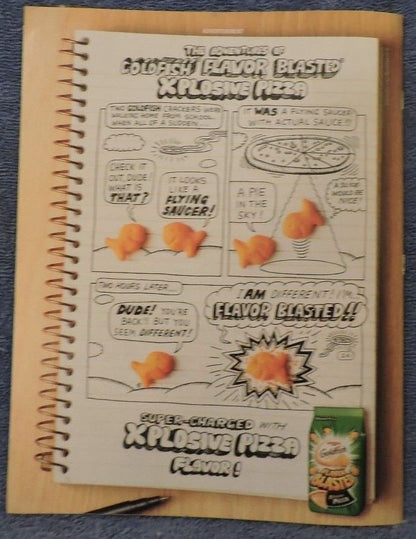 ADVERTISEMENT
THE ADVENTURES OF
GOLDFISH FLAVOR BLASTED
XPLOSIVE PIZZA
TWO GOLDFISH CRACKERS WERE
WALKING HOME FROM SCHOOL
WHEN ALL OF A SUDDEN...
CHECK IT
OUT, DUDE!
WHAT IS
THAT?
IT LOOKS
LIKE A
FLYING
SAUCER!
IT WAS A FLYING SAUCER
WITH ACTUAL SAUCE!!!
A PIE
IN THE
SKY!
WOULD BE
NICE!
TWO HOURS LATER...
DUDE! YOU'RE
BACK!!! BUT YOU
SEEM DIFFERENT!
I AM DIFFERENT! I'M
FLAVOR BLASTED!!
SUPER-CHARGED WITH
XPLOSIVE PIZZA
FLAVOR!
Goldfish
BLASTED